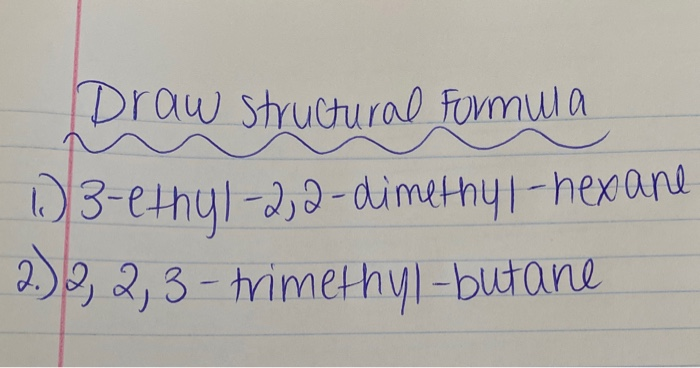 Draw structural Formula
1.) 3-ethyl-2,2-dimethyl-hexane
2.) 2, 2, 3-trimethyl-butane